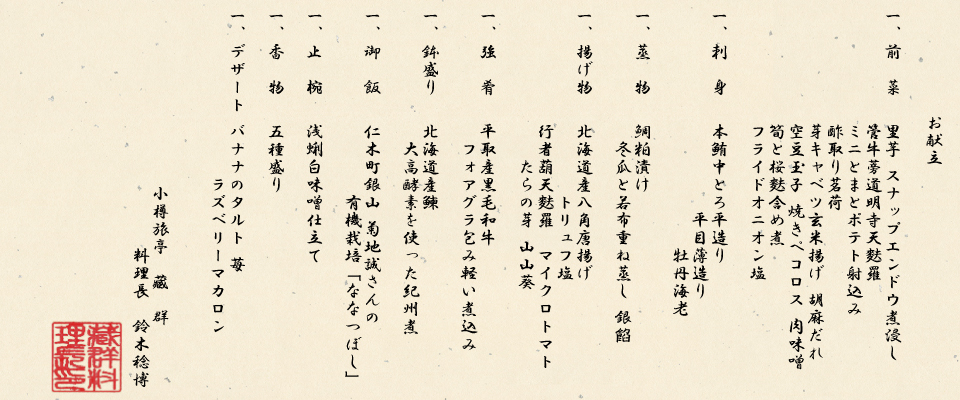 お献立
一、前菜 里芋 スナップエンドウ煮浸し
管牛蒡道明寺天麩羅
ミニとまとポテト射込み
酢取り茗荷
芽キャベツ玄米揚げ 胡麻だれ
空豆玉子 焼きペコロス 肉味噌
筍と桜麩含め煮
フライドオニオン塩
一、刺身 本鮪中とろ平造り
平目薄造り
牡丹海老
一、蒸物 鯛粕漬け
冬瓜と若布重ね蒸し 銀餡
一、揚げ物 北海道産八角唐揚げ
トリュフ塩
行者葫天麩羅 マイクロトマト
たらの芽 山山葵
一、強肴 平取産黒毛和牛
フォアグラ包み軽い煮込み
一、鉢盛り 北海道産鰊
大高酵素を使った紀州煮
一、御飯 仁木町銀山 菊地誠さんの
有機栽培「ななつぼし」
一、止椀 浅蜊白味噌仕立て
一、香物 五種盛り
一、デザート バナナのタルト 苺
ラズベリーマカロン
小樽旅亭 藏群
料理長 鈴木稔博
藏群料
理長印